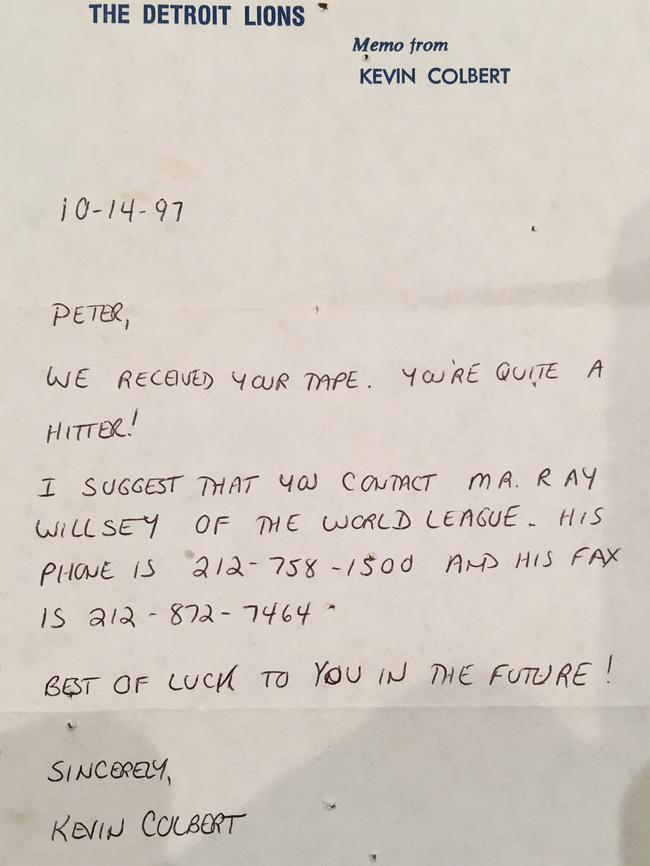 THE DETROIT LIONS
Memo from
KEVIN COLBERT
10-14-97
PETER,
WE RECEIVED YOUR TAPE. YOU'RE QUITE A
HITTER!
I SUGGEST THAT YOU CONTACT MR. RAY
WILLSEY OF THE WORLD LEAGUE. HIS
PHONE IS 212-758-1500 AND HIS FAX
IS 212-872-7464
BEST OF LUCK TO YOU IN THE FUTURE!
SINCERELY,
KEVIN COLBERT